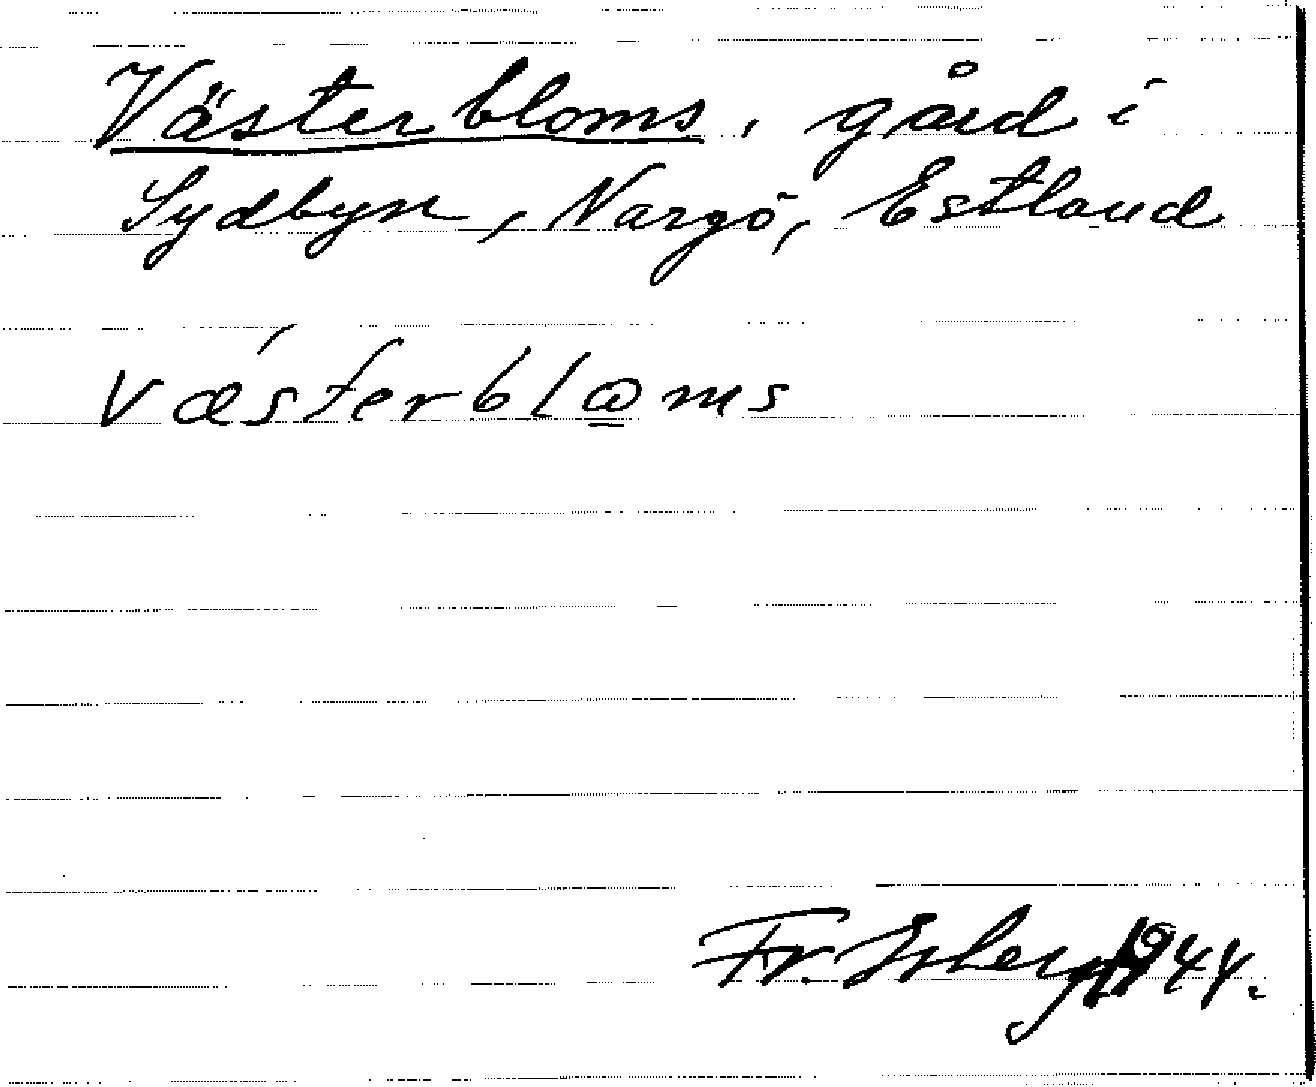 Västerbloms, gård i
Sydbyn, Nargö, Estland
væ´sterblωms
Fr. Isberg 1944.